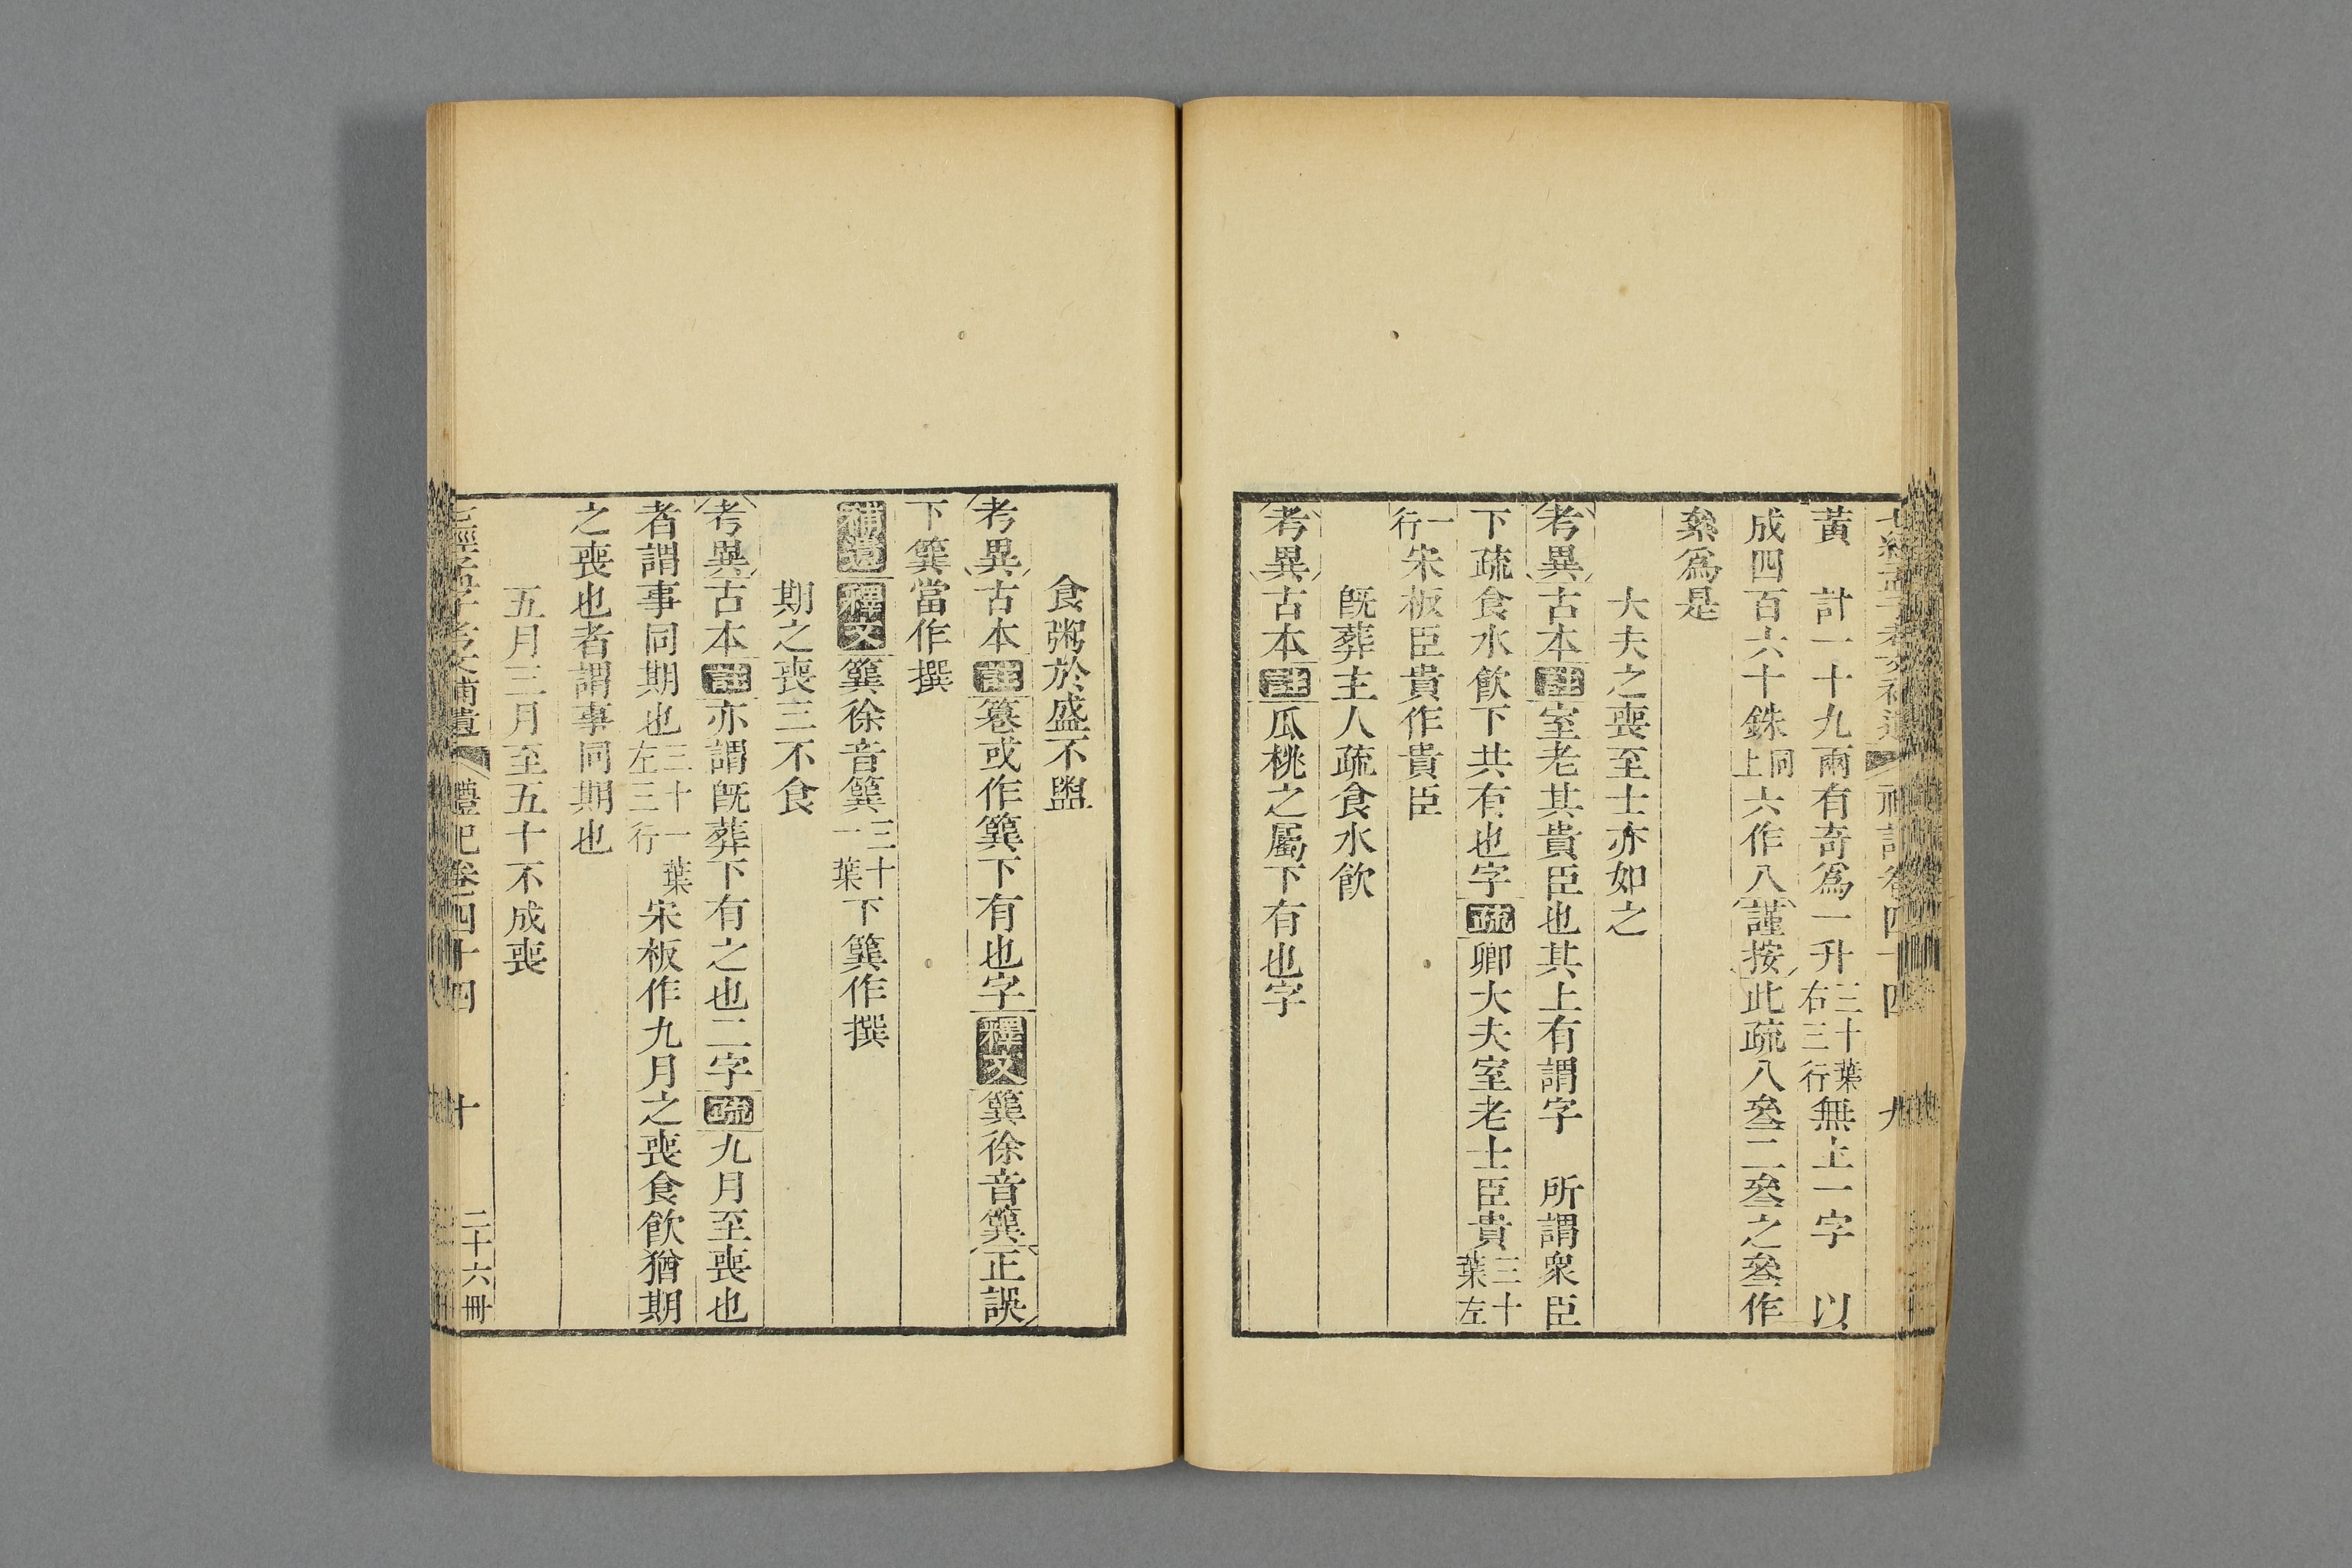 七經孟子考文補遺 禮記卷四十四 九
黃 計一十九兩有奇爲一升三十葉右三行無上一字 以
成四百六十銖同上六作八謹按此疏八絫二絫之絫作
絫爲是
大夫之喪至士亦如之
考異古本註室老其貴臣也其上有謂字 所謂衆臣
下疏食水飮下共有也字疏卿大夫室老士臣貴三十葉左
一行宋板臣貴作貴臣
旣葬主人疏食水飮
考異古本註瓜桃之屬下有也字
食粥於盛不盥
考異古本註篹或作簨下有也字釋文簨徐音簨正誤
下簨當作撰
補遺釋文簨徐音簨三十一葉下簨作撰
期之喪三不食
考異古本註亦謂旣葬下有之也二字疏九月至喪也
者謂事同期也三十一葉左三行宋板作九月之喪食飮猶期
之喪也者謂事同期也
五月三月至五十不成喪
七經孟子考文補遺 禮記卷四十四 十 二十六冊